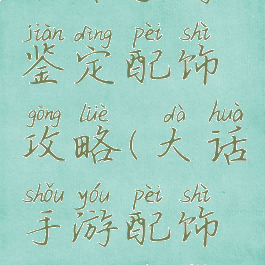 jiàn dìng pèi shì
鉴定配饰
gōng lüè dà huà
攻略(大话
shǒu yóu pèi shì
手游配饰